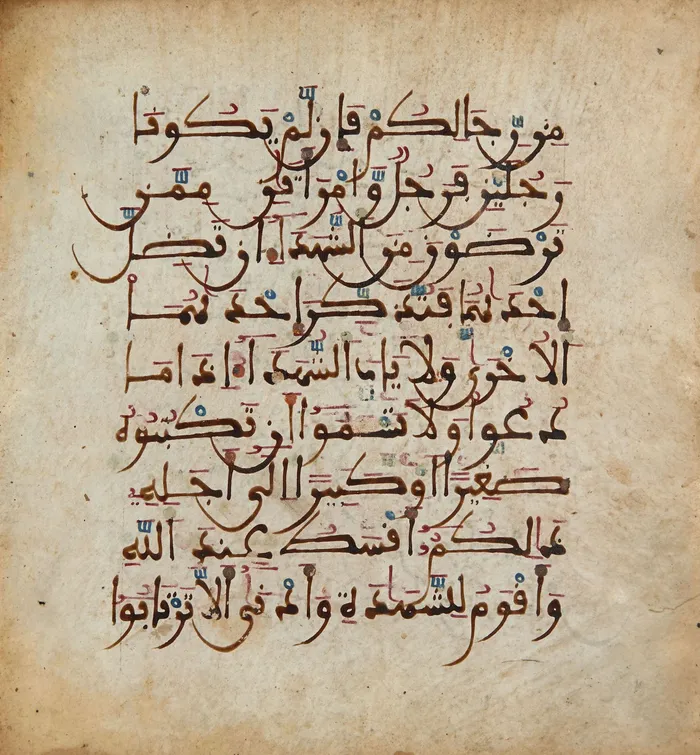 من رجالكم فإن لم يكونا
رجلين فرجل وامرأتن ممن
ترضون من الشهداء ان تضل
احديهما فتذكر احديهما
الاخرى ولا ياب الشهداء اذا ما
دعوا ولا تسموا ان تكتبوه
صغيرا او كبيرا الى اجله
ذالكم اقسط عند الله
واقوم للشهدة وادنى الا ترتابوا